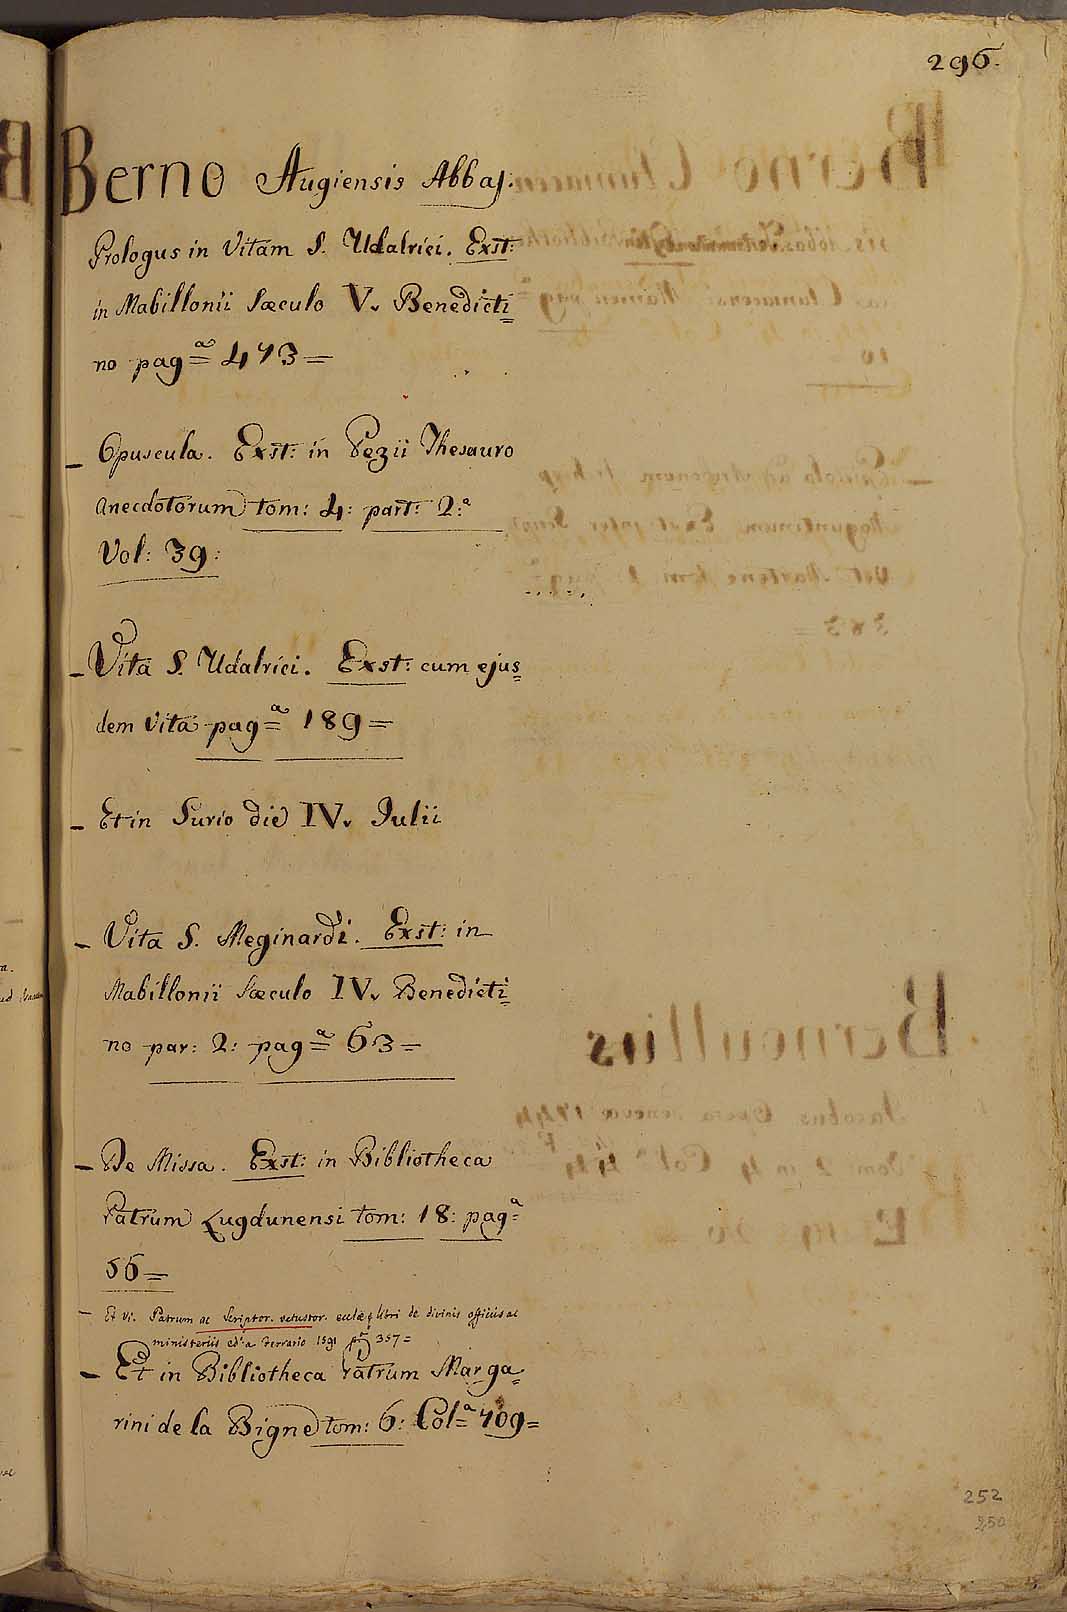 296.
Berno Augiensis Abbas.
Prologus in Vitam S. Udalrici. Exst:
in Mabillonii Sæculo V. Benedicti=
no pag=ª 473=
_ Opuscula. Exst: in Pezii Thesauro
Anecdotorum tom: 4: part: 2:ª
Vol: 39:
_ Vita S. Udalrici. Exst: cum ejus=
dem Vita pag=ª 189=
_ Et in Surio die IV. Julii
_ Vita S. Meginardi. Exst: in
Mabillonii Sæculo IV. Benedicti=
no par: 2: pag=ª 63=
_ De Missa. Exst: in Bibliotheca
Patrum Lugdunensi tom: 18: pag=ª
56=
_ Et Patrum ac Scriptor. vetustor. libri de divinis officiis ac
ministeriis ed. a Ferrario 1591 357=
_ Et in Bibliotheca Patrum Marga=
rini de la Bigne tom: 6: Col=ª 709=
252
250